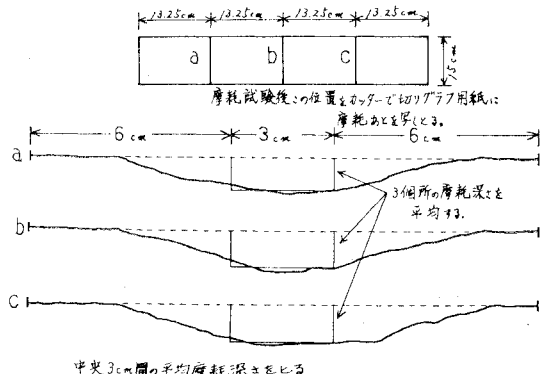 13.25cm 13.25cm 13.25cm 13.25cm
a b c
15cm
摩耗試験後この位置をカッターで切りグラフ用紙に
摩耗あとを写しとる。
6cm 3cm 6cm
a
3個所の摩耗深さを
平均する.
b
c
中央3cm間の平均摩耗深さをとる